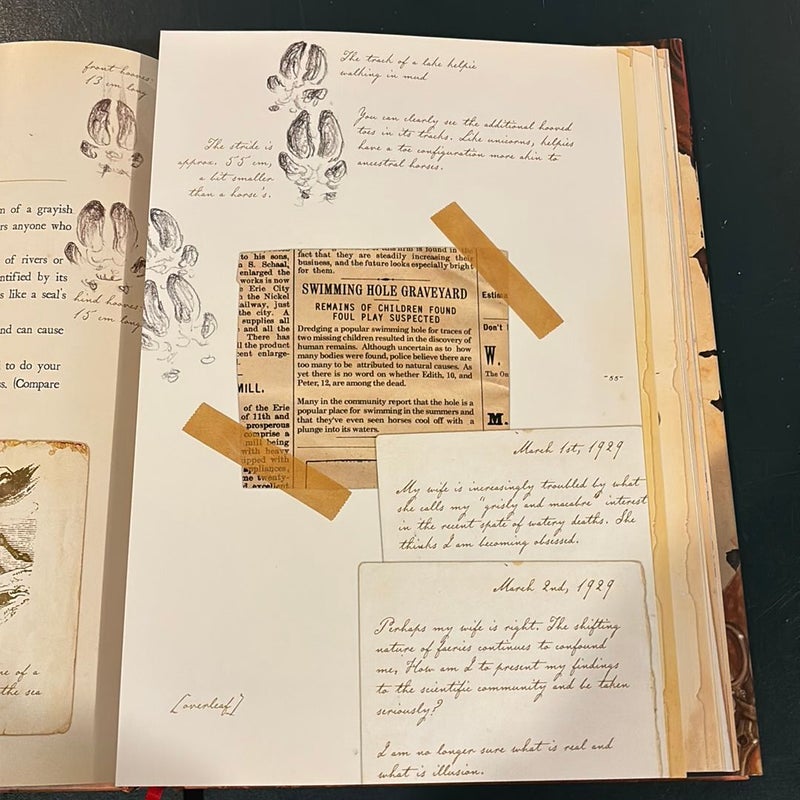 front hooves:
13 cm long
m of a grayish
rs anyone who
of rivers or
entified by its
s like a seal's
hind hooves:
15 cm long
nd can cause
l to do your
ss. (Compare
ne of a
the sea
The track of a lake kelpie
walking in mud
You can clearly see the additional hooved
toes in its tracks. Like unicorns, kelpies
have a toe configuration more akin to
ancestral horses.
The stride is
approx. 55 cm,
a bit smaller
than a horse's.
to his sons,
S. Schaal,
enlarged the
works is now
Erie City
the Nickel
ailway, just
the city. A
supplies all
and all the
There has
ll the product
cent enlarge-
MILL.
of the Erie
of 11th and
prosperous
comprise a
mill being
with heavy
ipped with
appliances,
me twenty-
d excellent
is found in the
fact that they are steadily increasing their
business, and the future looks especially bright
for them.
SWIMMING HOLE GRAVEYARD
REMAINS OF CHILDREN FOUND
FOUL PLAY SUSPECTED
Dredging a popular swimming hole for traces of
two missing children resulted in the discovery of
human remains. Although uncertain as to how
many bodies were found, police believe there are
too many to be attributed to natural causes. As
yet there is no word on whether Edith, 10, and
Peter, 12, are among the dead.
Many in the community report that the hole is a
popular place for swimming in the summers and
that they've even seen horses cool off with a
plunge into its waters.
Estim
Don't
W.
The On
M.
-55-
March 1st, 1929
My wife is increasingly troubled by what
she calls my "grisly and macabre" interest
in the recent spate of watery deaths. She
thinks I am becoming obsessed.
March 2nd, 1929
Perhaps my wife is right. The shifting
nature of faeries continues to confound
me. How am I to present my findings
to the scientific community and be taken
seriously?
I am no longer sure what is real and
what is illusion.
[overleaf]